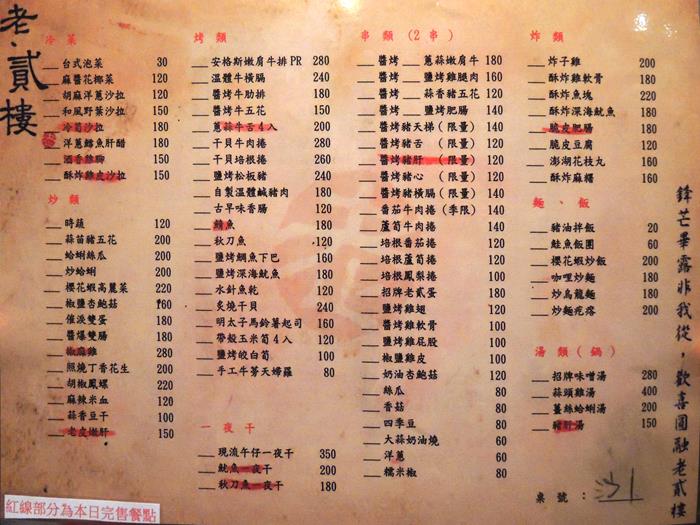 老·貳樓
冷菜
台式泡菜 30
麻醬花椰菜 120
胡麻洋蔥沙拉 120
和風野菜沙拉 150
冷筍沙拉 180
洋蔥鱈魚肝醋 180
酒香雞腳 150
酥炸雞皮沙拉 150
炒類
時蔬 120
蒜苗豬五花 200
蛤蜊絲瓜 200
炒蛤蜊 200
櫻花蝦高麗菜 220
椒鹽杏鮑菇 160
催淚雙蛋 180
醬爆雙腸 180
椒麻雞 280
照燒丁香花生 200
胡椒鳳螺 220
麻辣米血 120
蒜香豆干 100
老皮嫩肝 150
烤類
安格斯嫩肩牛排PR 280
溫體牛橫膈 240
醬烤牛肋排 180
醬烤牛五花 150
蔥蒜牛舌4入 200
干貝牛肉捲 280
干貝培根捲 260
鹽烤松板豬 240
自製溫體鹹豬肉 180
古早味香腸 120
鯖魚 180
秋刀魚 120
鹽烤鯛魚下巴 160
鹽烤深海魷魚 180
水針魚乾 120
炙燒干貝 240
明太子馬鈴薯起司 160
帶殼玉米筍4入 120
鹽烤皎白筍 100
手工牛蒡天婦羅 80
一夜干
現流午仔一夜干 350
魷魚一夜干 200
秋刀魚一夜干 180
串類(2串)
醬烤 蔥蒜嫩肩牛 180
醬烤 鹽烤雞腿肉 160
醬烤 蒜香豬五花 120
醬烤 鹽烤肥腸 140
醬烤豬天梯(限量) 140
醬烤豬舌(限量) 120
醬烤豬肝(限量) 120
醬烤豬心(限量) 120
醬烤豬橫膈(限量) 140
番茄牛肉捲(季限) 140
蘆筍牛肉捲 140
培根番茄捲 120
培根蘆筍捲 120
培根鳳梨捲 100
招牌老貳蛋 180
鹽烤雞翅 120
鹽烤雞軟骨 100
鹽烤雞屁股 100
椒鹽雞皮 100
奶油杏鮑菇 120
絲瓜 80
香菇 80
四季豆 80
大蒜奶油燒 60
洋蔥 60
糯米椒 80
炸類
炸子雞 200
酥炸雞軟骨 180
酥炸魚塊 220
酥炸深海魷魚 180
脆皮肥腸 180
脆皮豆腐 120
澎湖花枝丸 160
酥炸麻糬 160
麵、飯
豬油拌飯 20
鮭魚飯團 60
櫻花蝦炒飯 200
咖哩炒麵 180
炒烏龍麵 180
炒麵疙瘩 200
湯類(鍋)
招牌味噌湯 280
蒜頭雞湯 400
薑絲蛤蜊湯 200
豬肝湯 150
桌號:
鋒芒畢露非我從,歡喜圓融老貳樓
紅線部分為本日完售餐點